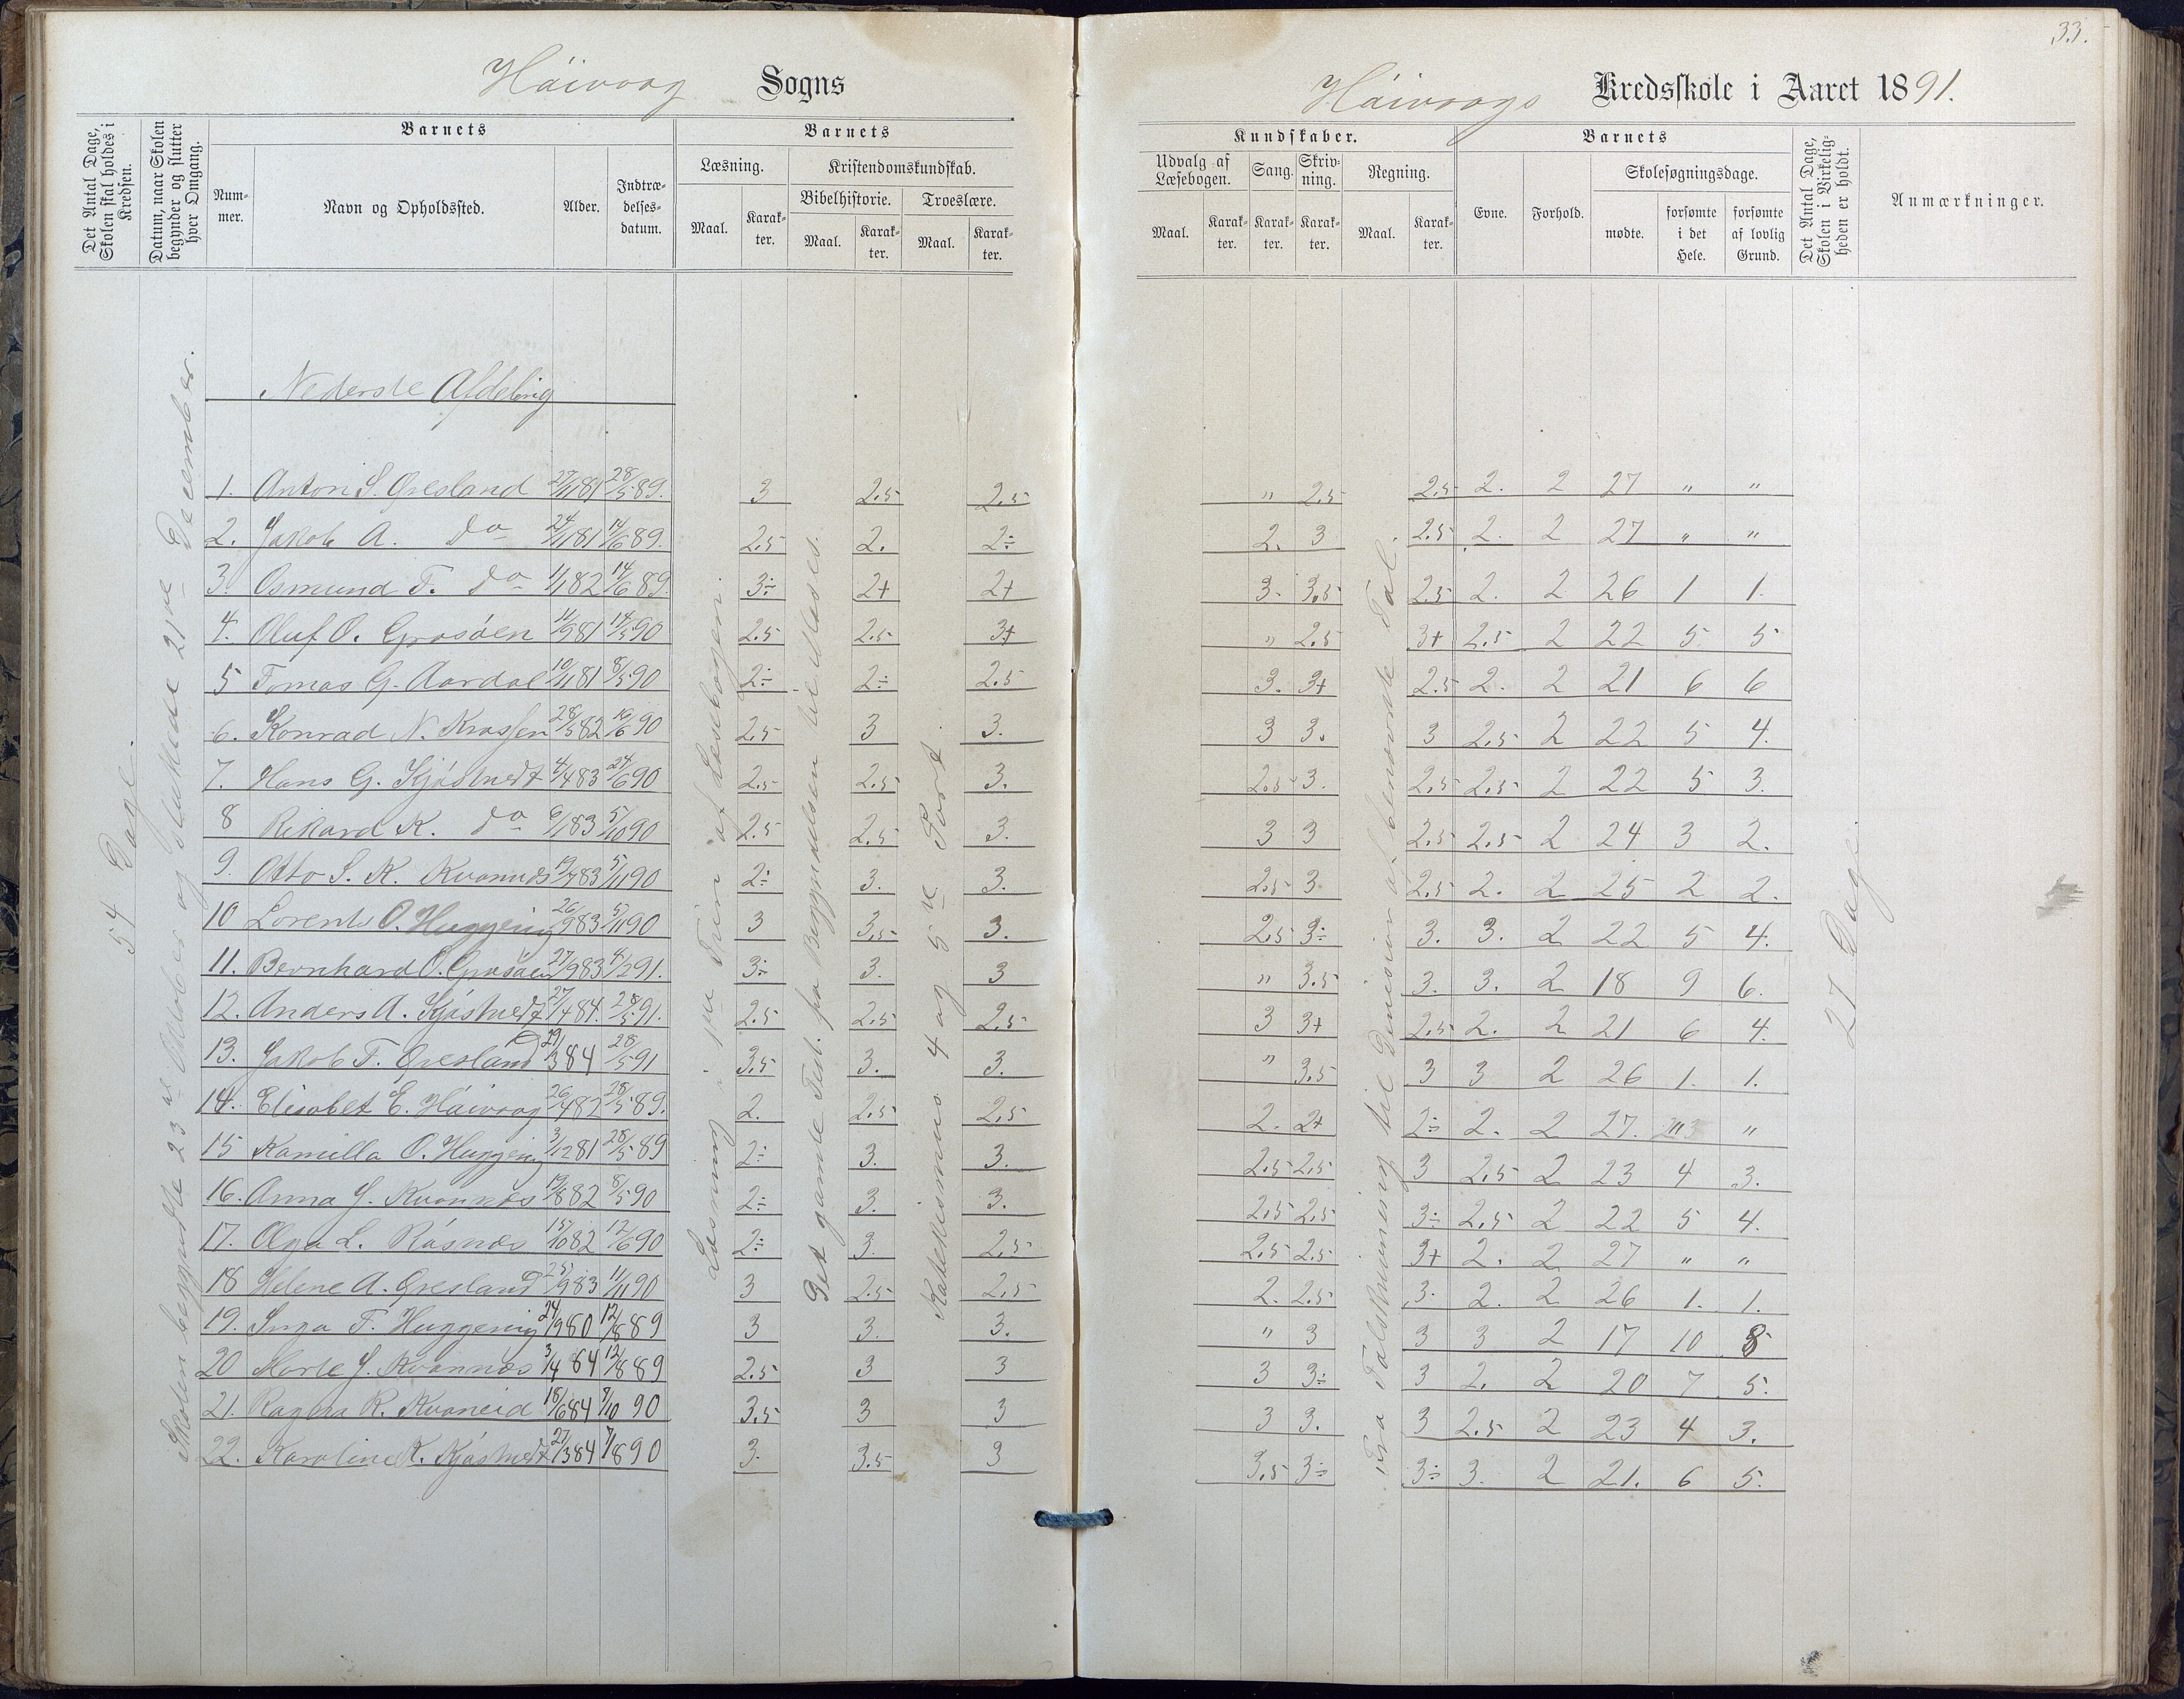 33.
Håivaag Sogns
Håivaags Kredsskole i Aaret 1891.
Det Antal Dage, Skolen skal holdes i Kredsen.
Datum, naar Skolen begynder og slutter hver Omgang.
Barnets
Nummer.
Navn og Opholdssted.
Alder.
Indtrædelsesdatum.
Barnets
Læsning.
Maal.
Karakter.
Kristendomskundskab.
Bibelhistorie.
Maal.
Karakter.
Troeslære.
Maal.
Karakter.
Kundskaber.
Udvalg af Læsebogen.
Maal.
Karakter.
Sang.
Karakter.
Skrivning.
Karakter.
Regning.
Maal.
Karakter.
Barnets
Evne.
Forhold.
Skolesøgningsdage.
mødte.
forsømte i det Hele.
forsømte af lovlig Grund.
Det Antal Dage, Skolen i Virkeligheden er holdt.
Anmærkninger.
54 Dage.
Skolen begyndte 23de Oktober og sluttede 21de December.
Nederste Afdeling
Læsning i 1ste Trin af Læsebogen.
Det gamle Test. fra Begyndelsen
Katekkesmus 4 og 5te Part.
Fra Talskrivning til Division af benævnte Tal.
27 Dage.
1. Anton S. Øresland 27/11 81 28/5 89. 3 2.5 2.5 " 2.5 2.5 2. 2 27 " "
2. Jakob A. do 24/11 81 14/6 89. 2.5 2. 2÷ 2. 3 2.5 2. 2 27 " "
3. Osmund T. do 1/1 82 14/6 89. 3÷ 2+ 2+ 3. 3.5 2.5 2. 2 26 1 1.
4. Oluf O. Grosöen 11/9 81 14/5 90 2.5 2.5 3+ " 2.5 3+ 2.5 2 22 5 5
5 Tomas G. Aardal 10/11 81 8/5 90 2÷ 2÷ 2.5 3. 3+ 2.5 2. 2 21 6 6
6. Konrad N. Krossen 28/5 82 10/6 90 2.5 3 3. 3 3. 3 2.5 2 22 5 4.
7. Hans G. Kjöstvedt 4/4 83 24/6 90 2.5 2.5 3. 2.5 3. 2.5 2.5 2 22 5 3.
8 Rikard K. do 6/1 83 5/10 90 2.5 2.5 3. 3 3 2.5 2.5 2 24 3 2.
9. Otto S. K. Kvannes 19/7 83 5/11 90 2÷ 3. 3. 2.5 3 2.5 2. 2 25 2 2.
10 Lorents O. Huggenig 26/9 83 5/11 90 3 3.5 3. 2.5 3÷ 3. 3. 2 22 5 4.
11. Bernhard O. Grosöen 27/9 83 4/2 91. 3÷ 3. 3 " 3.5 3. 3. 2 18 9 6.
12. Anders A. Kjöstvedt 27/4 84. 28/5 91. 2.5 2.5 2.5 3 3+ 2.5 2. 2 21 6 4.
13. Jakob T. Øresland 29/3 84 28/5 91 3.5 3. 3. " 3.5 3 3 2 26 1. 1.
14. Elisabet E. Håivaag 26/4 82 28/5 89. 2. 2.5 2.5 2. 2+ 2÷ 2. 2 27. " "
15 Kamilla O. Huggenig 3/12 81 28/5 89 2÷ 3. 3. 2.5 2.5 3 2.5 2 23 4 3.
16. Anna J. Kvannes 19/8 82 8/5 90 2÷ 3. 3. 2.5 2.5 3÷ 2.5 2 22 5 4.
17. Olga L. Råsnæs 15/10 82 12/6 90 2÷ 3. 2.5 2.5 2.5 3+ 2. 2 27 " "
18 Helene A. Øresland 25/9 83 11/11 90 3 2.5 2.5 2. 2.5 3. 2. 2 26 1. 1.
19. Inga T. Huggenig 24/9 80 12/8 89 3 3. 3. " 3 3 3 2 17 10 8
20 Marte J. Kvannes 3/4 84 12/8 89 2.5 3 3 3 3÷ 3 2. 2 20 7 5.
21. Ragna R. Kvaneid 18/6 84 7/10 90 3.5 3 3 3 3. 3 2.5 2 23 4 3.
22. Karoline K. Kjöstvedt 27/3 84 7/8 90 3. 3.5 3 3.5 3÷ 3÷ 3. 2 21. 6 5.